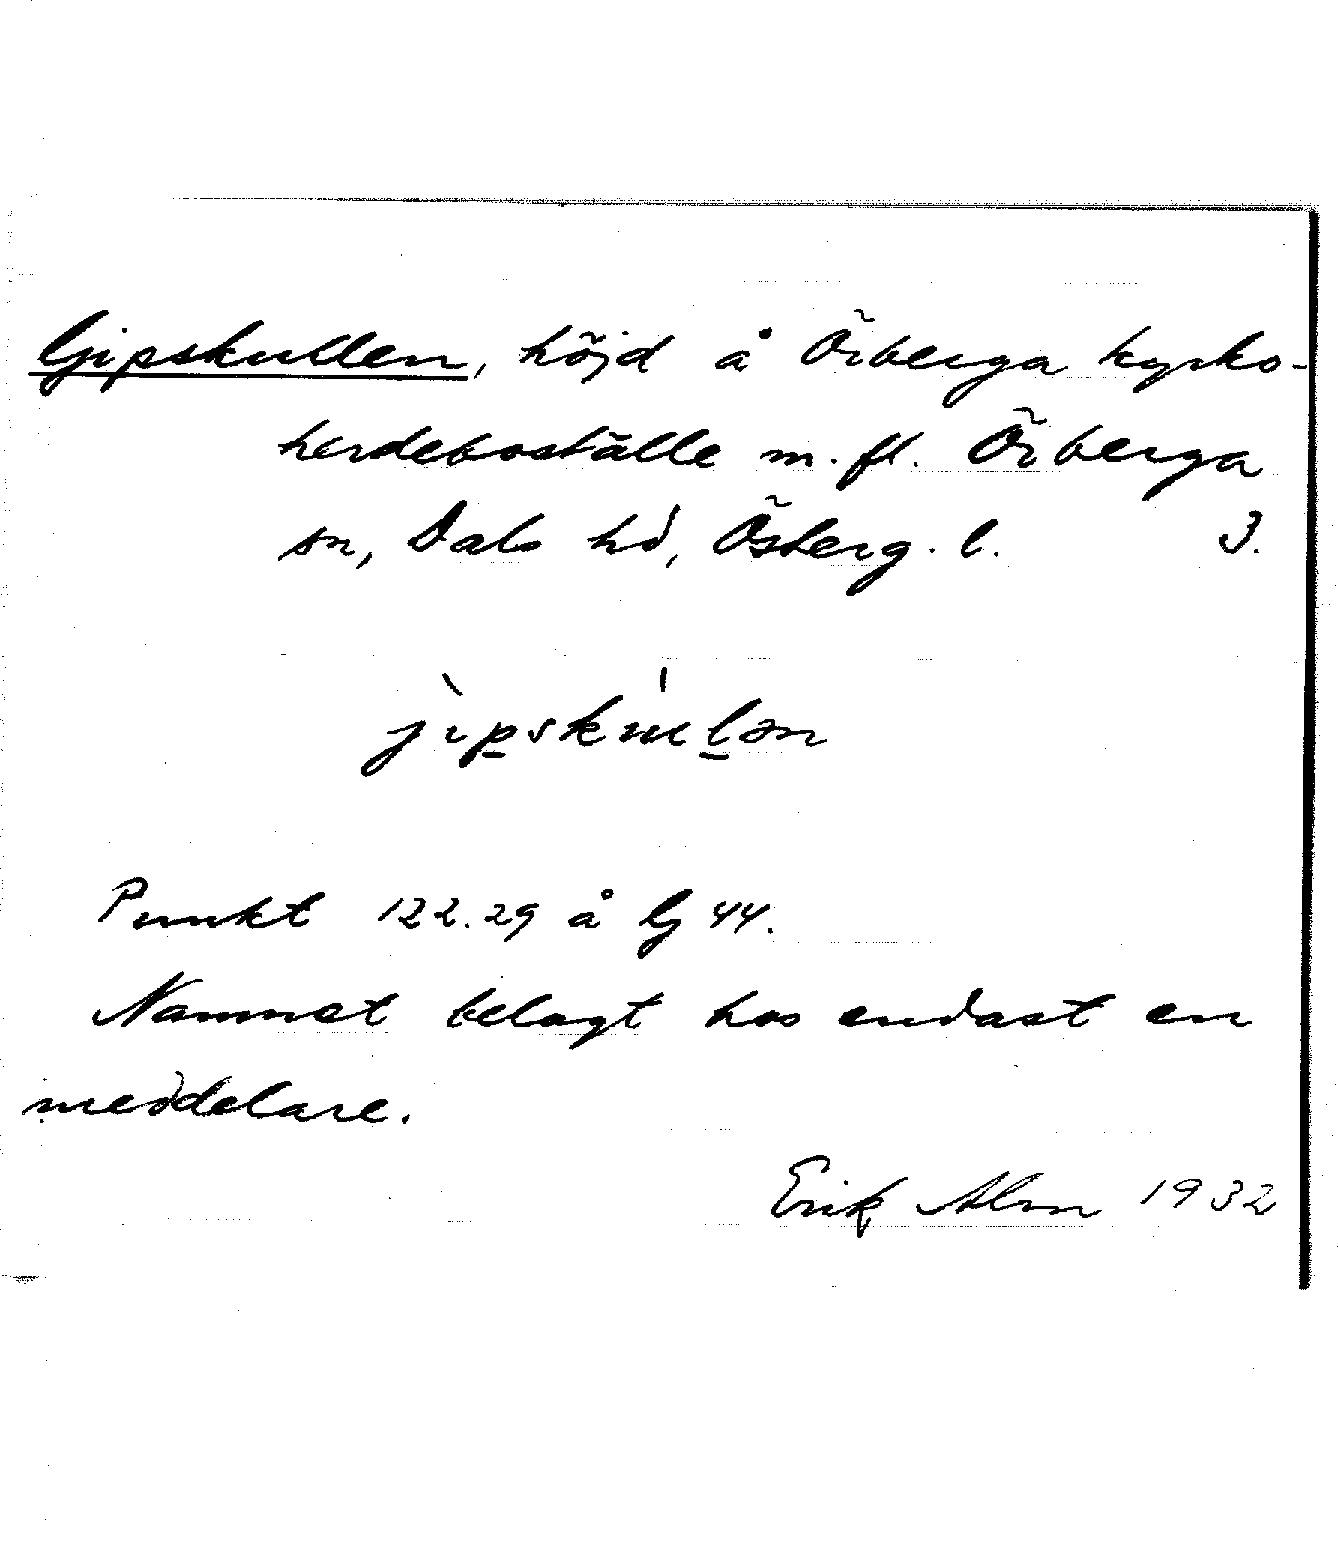 Gipskullen, höjd å Örberga kyrko-
herdeboställe m. fl. Örberga
sn, Dals hd, Österg. l. 3.
jìpskúlən
Punkt 122.29 å G 44.
Namnet belagt hos endast en
meddelare.
Erik Alm 1932